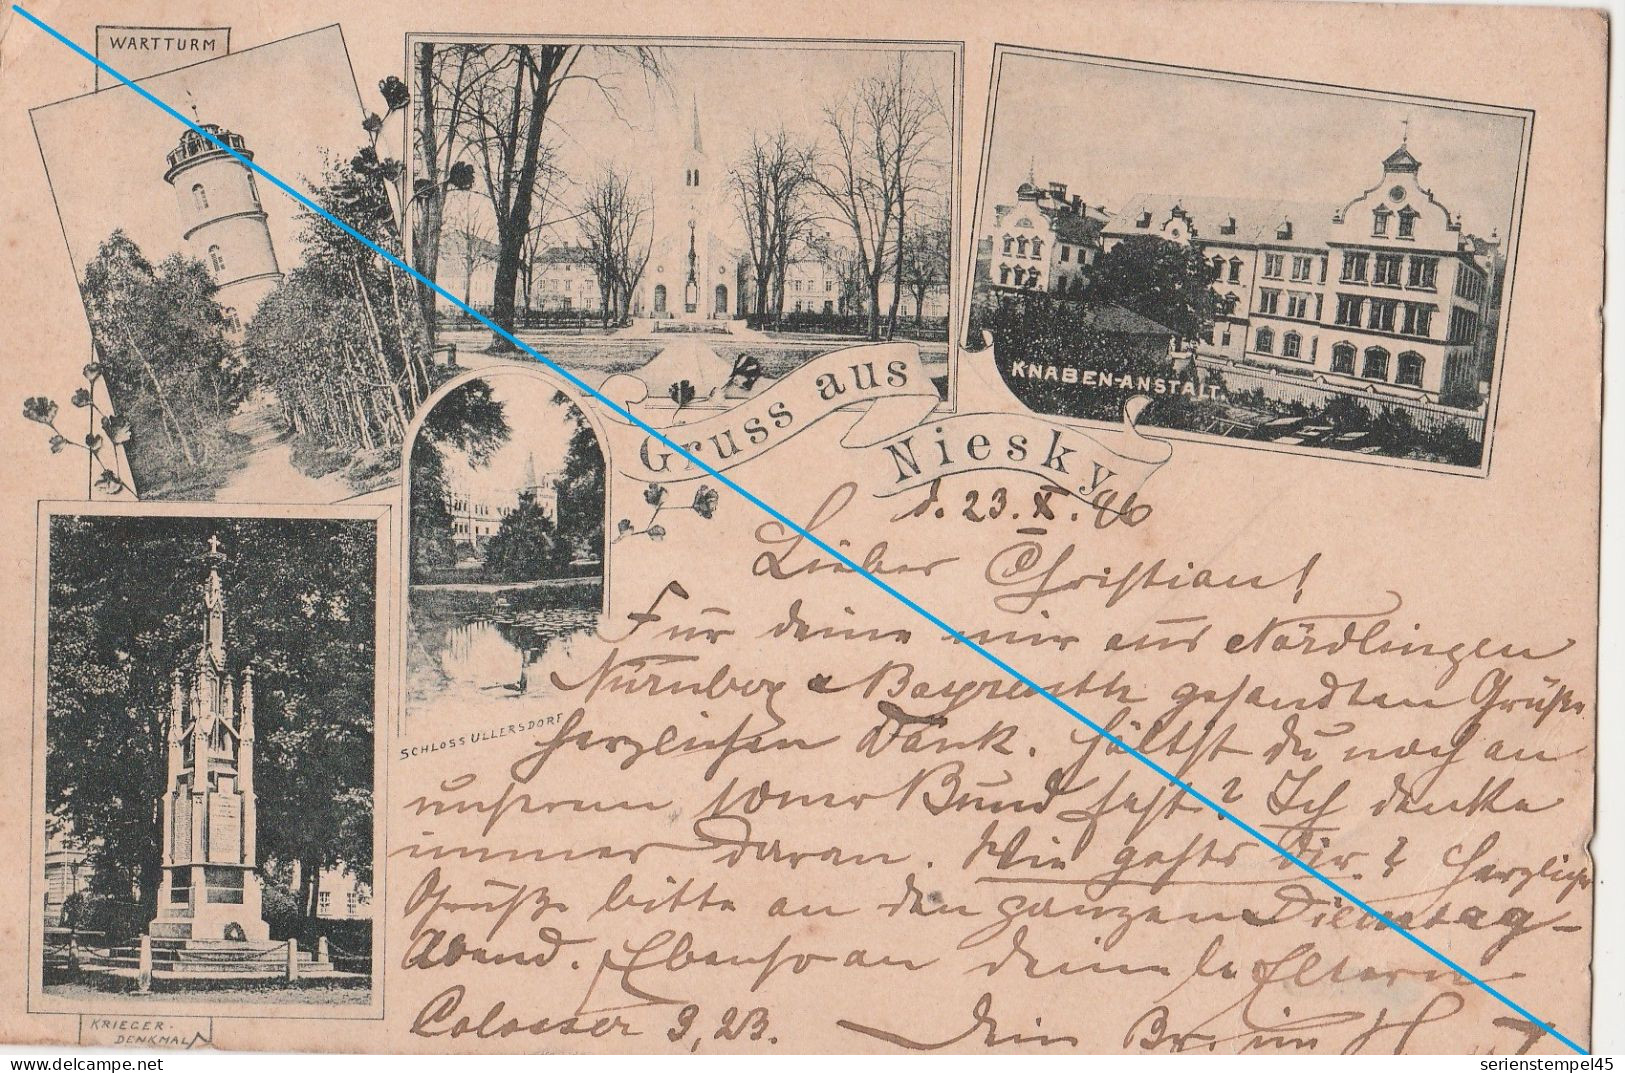 WARTTURM
KNABEN-ANSTALT.
Gruss aus
Niesky
SCHLOSS ULLERSDORF
KRIEGER-
DENKMAL
d. 23. X. 96
Lieber Christian!
Für deine mir aus Nördlingen
Nürnberg & Bayreuth gesandten Grüße
herzlichen Dank. Hältst Du noch an
unserem Bund fest? Ich denke
immer daran. Wie gehts Dir? Herzliche
Grüße bitte an den ganzen Dienstag-
Abend. Ebenso an deine l. Eltern
Colosser 3, 23. Dein Br. im H.
serienstempel45